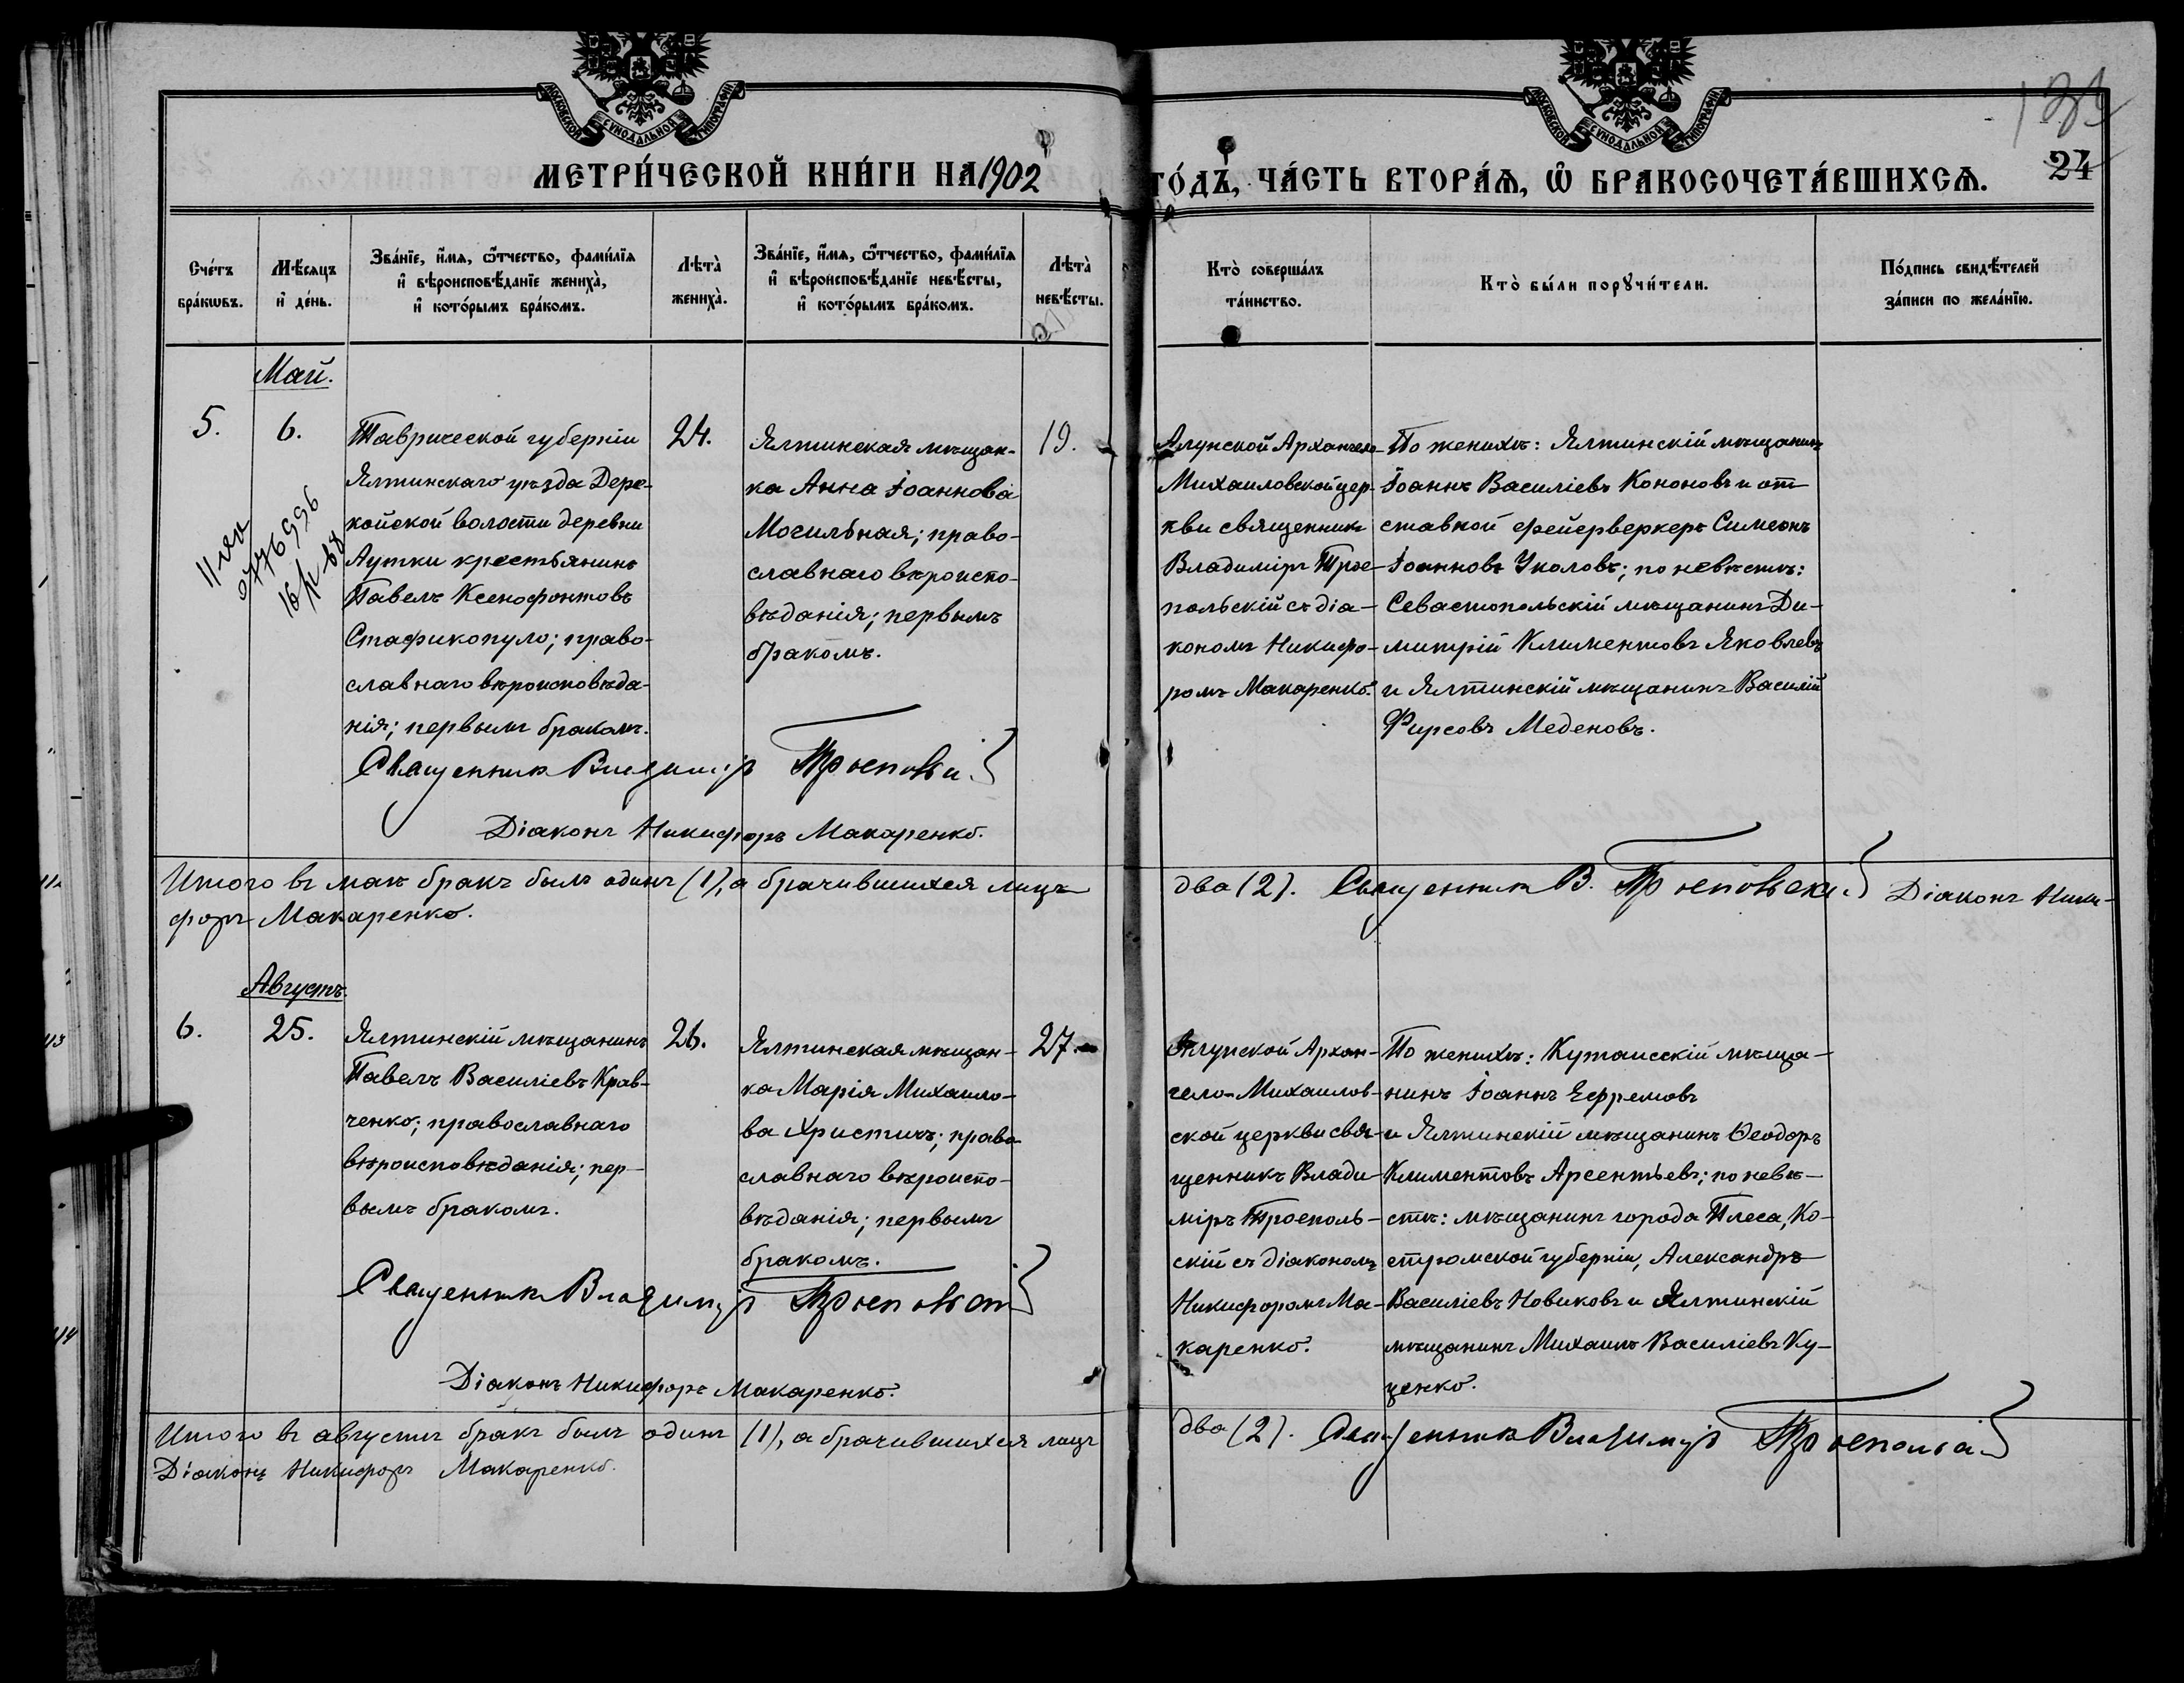 МОСКОВСКОЙ СѴНОДАЛЬНОЙ ТИПОГРАФІИ
МОСКОВСКОЙ СѴНОДАЛЬНОЙ ТИПОГРАФІИ
МЕТРИ́ЧЕСКОЙ КНИ́ГИ НА 1902
ГО́ДЪ, ЧА́СТЬ ВТОРА́Ѧ, Ѽ БРАКОСОЧЕТА́ВШИХСѦ.
24
Сче́тъ бра́кѡвъ.
Мѣ́сяцъ и҆ де́нь.
Зва́нїе, и҆́мѧ, ѻ҆́тчество, фами́лїѧ и҆ вѣроисповѣ́данїе жениха̀, и҆ кото́рымъ бра́комъ.
Лѣта̀ жениха̀.
Зва́нїе, и҆́мѧ, ѻ҆́тчество, фами́лїѧ и҆ вѣроисповѣ́данїе невѣ́сты, и҆ кото́рымъ бра́комъ.
Лѣта̀ невѣ́сты.
Кто̀ соверша́лъ та́инство.
Кто̀ бы́ли порꙋчи́тели.
По́дпись свидѣ́телей за́писи по жела́нїю.
Май.
5.
6.
Таврической губерніи
Ялтинскаго уѣзда Дере-
койской волости деревни
Аутки крестьянинъ
Павелъ Ксенофонтовъ
Стафикопуло; право-
славнаго вѣроисповѣда-
нія; первымъ бракомъ.
24.
Ялтинская мѣщан-
ка Анна Іоаннова
Могильная; право-
славнаго вѣроиспо-
вѣданія; первымъ
бракомъ.
19.
Алупской Архангело-
Михаиловской цер-
кви священникъ
Владиміръ Трое-
польскій съ діа-
кономъ Никифо-
ромъ Макаренко.
По женихѣ: Ялтинскій мѣщанинъ
Іоаннъ Василіевъ Кононовъ и от
ставной фейерверкеръ Симеонъ
Іоанновъ Уколовъ; по невѣстѣ:
Севастопольскій мѣщанинъ Ди-
митрій Климентовъ Яковлевъ
и Ялтинскій мѣщанинъ Василій
Фирсовъ Меденовъ.
Священникъ Владиміръ Троепольскій
Діаконъ Никифоръ Макаренко.
Итого въ маѣ бракъ былъ одинъ (1), а брачившихся лицъ два (2). Священникъ В. Троепольскій Діаконъ Ники-
форъ Макаренко.
Августъ.
6.
25.
Ялтинскій мѣщанинъ
Павелъ Василіевъ Крав-
ченко; православнаго
вѣроисповѣданія; пер-
вымъ бракомъ.
26.
Ялтинская мѣщан-
ка Марія Михаило-
ва Христичъ; право
славнаго вѣроиспо-
вѣданія; первымъ
бракомъ.
27.
Алупской Архан-
гело-Михаилов-
ской церкви свя-
щенникъ Влади-
міръ Троеполь-
скій съ діакономъ
Никифоромъ Ма-
каренко.
По женихѣ: Кутаисскій мѣща-
нинъ Іоаннъ Ефремовъ
и Ялтинскій мѣщанинъ Ѳеодоръ
Климентовъ Арсентьевъ; по невѣ-
стѣ: мѣщанинъ города Плеса, Ко-
стромской губерніи, Александръ
Василіевъ Новиковъ и Ялтинскій
мѣщанинъ Михаилъ Василіевъ Ку-
ценко.
Священникъ Владиміръ Троепольскій
Діаконъ Никифоръ Макаренко.
Итого въ августѣ бракъ былъ одинъ (1), а брачившихся лицъ два (2). Священникъ Владиміръ Троепольскій
Діаконъ Никифоръ Макаренко.